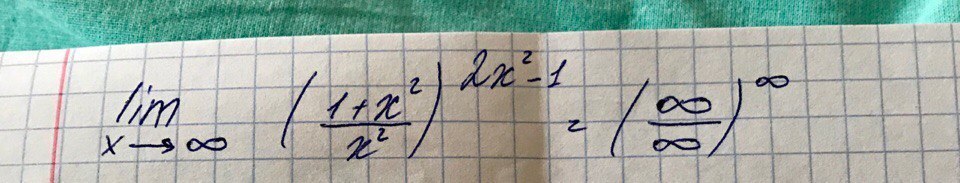 lim x→∞ ((1+x²)/x²)^(2x²-1) = (∞/∞)^∞